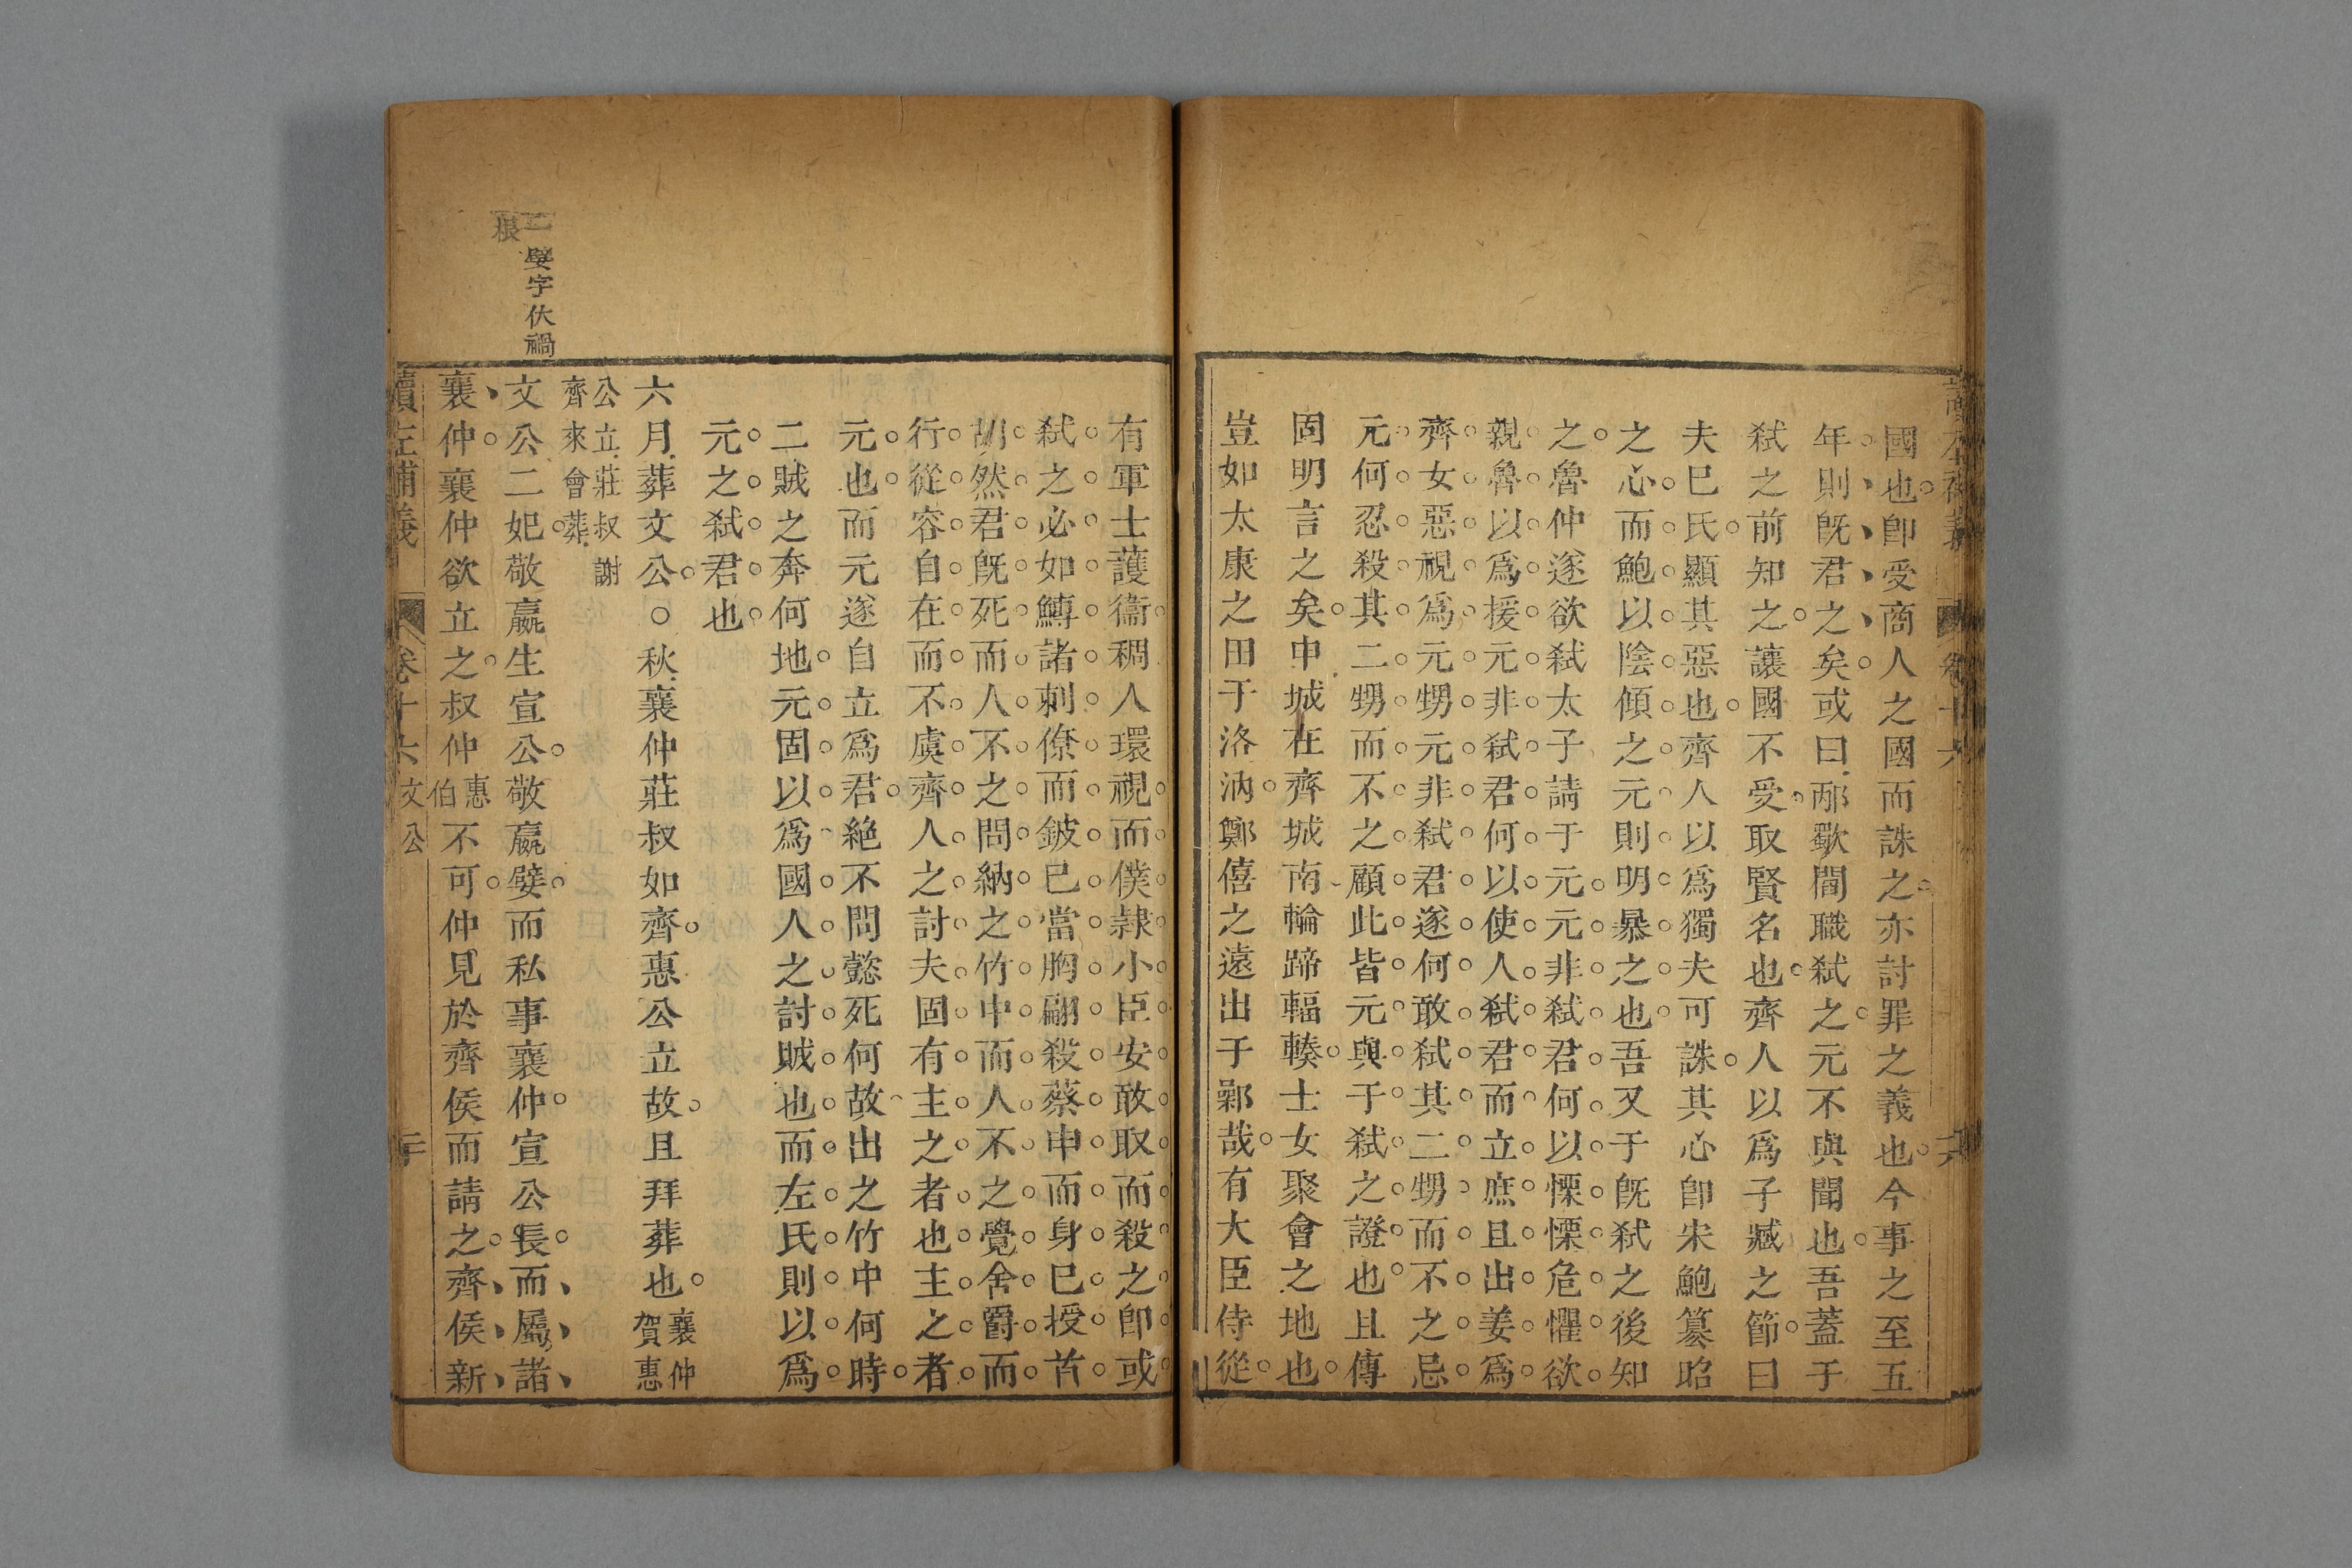 國也卽受商人之國而誅之亦討罪之義也今事之至五
年則旣君之矣或曰邴歜閻職弑之元不與聞也吾蓋于
弑之前知之讓國不受取賢名也齊人以爲子臧之節曰
夫巳氏顯其惡也齊人以爲獨夫可誅其心卽宋鮑篡昭
之心而鮑以陰傾之元則明暴之也吾又于旣弑之後知
之魯仲遂欲弑太子請于元元非弑君何以慄慄危懼欲
親魯以爲援元非弑君何以使人弑君而立庶且出姜爲
齊女惡視爲元甥元非弑君遂何敢弑其二甥而不之忌
元何忍殺其二甥而不之顧此皆元與于弑之證也且傳
固明言之矣申城在齊城南輪蹄輻輳士女聚會之地也
豈如太康之田于洛汭鄭僖之遠出于鄵哉有大臣侍從
有軍士護衞稠人環視而僕隷小臣安敢取而殺之卽或
弑之必如鱄諸刺僚而鈹已當胸翩殺蔡申而身已授首
胡然君旣死而人不之問納之竹中而人不之覺舍爵而
行從容自在而不虞齊人之討夫固有主之者也主之者
元也而元遂自立爲君絶不問懿死何故出之竹中何時
二賊之奔何地元固以爲國人之討賊也而左氏則以爲
元之弑君也
六月葬文公○秋襄仲莊叔如齊惠公立故且拜葬也襄仲賀惠
公立莊叔謝齊來會葬
二嬖字伏禍
根
文公二妃敬嬴生宣公敬嬴嬖而私事襄仲宣公長而屬諸
襄仲襄仲欲立之叔仲惠伯不可仲見於齊侯而請之齊侯新
讀左補義 卷十六 文公 二十